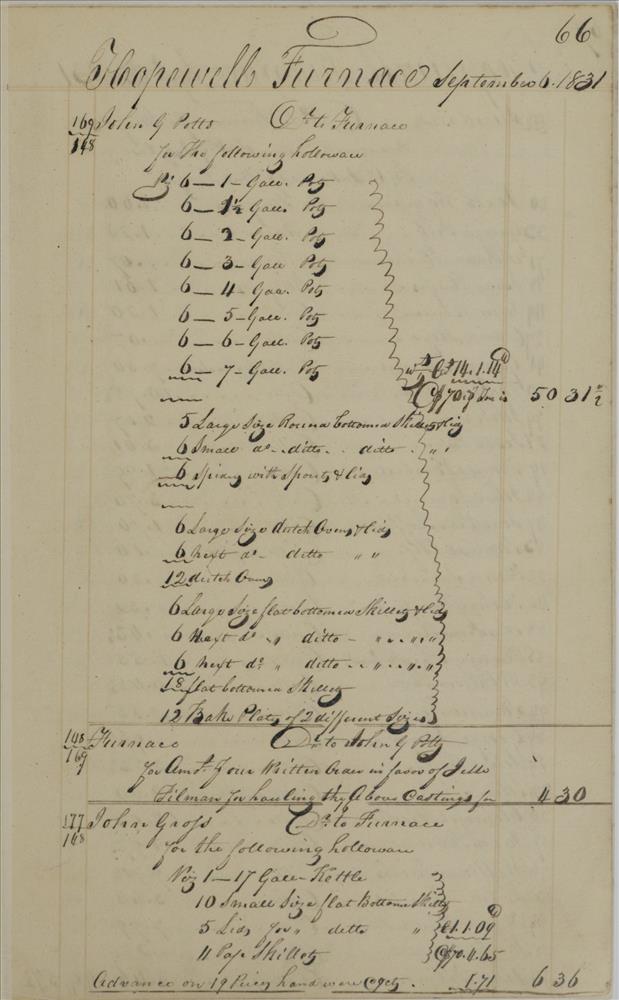 66
Hopewell Furnace September 6. 1831
169 John G Potts Dr to Furnace
148
for the following hollowware
6 — 1 — Gall. Pots
6 — 1½ Gall. Pots
6 — 2 — Gall. Pots
6 — 3 — Gall Pots
6 — 4 — Gall. Pots
6 — 5 — Gall. Pots
6 — 6 — Gall. Pots
6 — 7 — Gall. Pots wt C 14.1.14
@ $70 50 31½
5 Large Size Round bottomed Skillets & lids
6 Small do - ditto . ditto . " "
6 Spiders with Spouts & lids
6 Large Size dutch Ovens & lids
6 Next do - ditto " "
12 dutch Ovens
6 Large Size flat bottomed Skillets & lids
6 Next do " ditto - " . " . "
6 next do " ditto . . " . . " . "
18 flat bottomed Skillets
12 Bake Plates of 2 different Sizes
148 Furnace Dr to John G Potts
169
for Amt. of our Written Order in favor of
Tilman for hauling the Above Castings for 4 30
177 John Gross Dr to Furnace
148
for the following hollowware
Viz 1 — 17 Gall - Kettle
10 Small Size flat Bottom Skillets
5 Lids for " ditto " C 1.1.09
11 Skillets @ $70. 4.65
Advance on 19 Pieces hand ware @ 9cts . 1.71 6 36